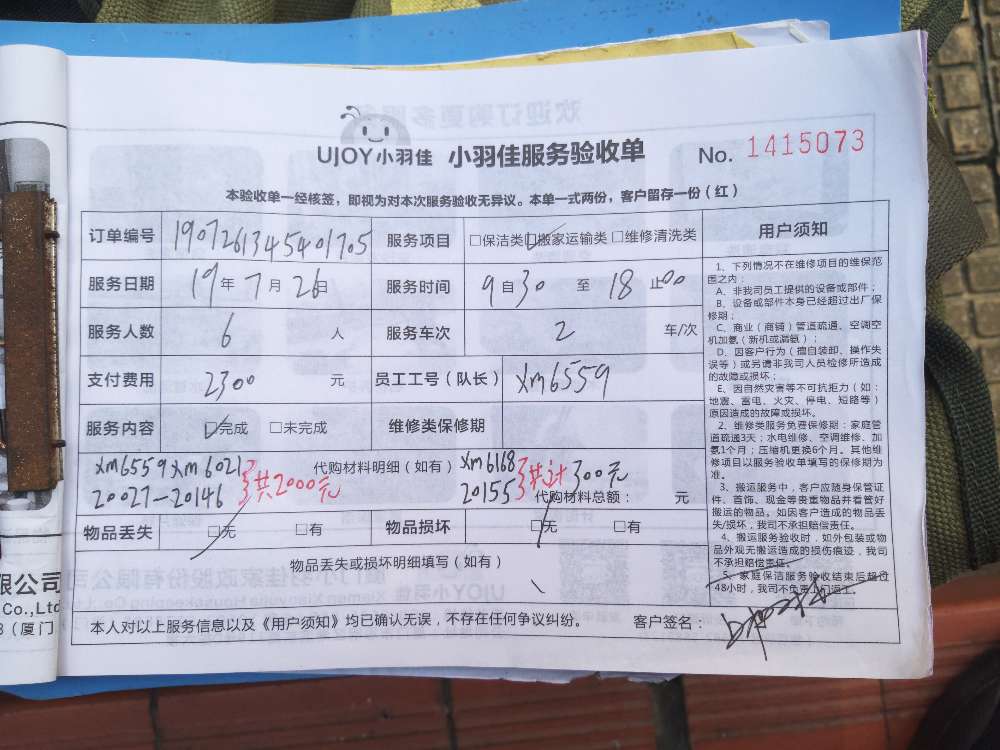 UJOY小羽佳 小羽佳服务验收单 No. 1415073
本验收单一经核签，即视为对本次服务验收无异议。本单一式两份，客户留存一份（红）
订单编号 190726134540170S 服务项目 □保洁类 □搬家运输类 □维修清洗类
服务日期 19年7月26日 服务时间 9自30至18止00
服务人数 6人 服务车次 2车/次
支付费用 2300元 员工工号（队长） xm6559
服务内容 □完成 □未完成 维修类保修期
xm6559 xm6021 代购材料明细（如有） xm6168
20027-20146 共2000元 20155 共计300元 代购材料总额： 元
物品丢失 □无 □有 物品损坏 □无 □有
物品丢失或损坏明细填写（如有）
本人对以上服务信息以及《用户须知》均已确认无误，不存在任何争议纠纷。 客户签名：
用户须知
1、下列情况不在维修项目的维保范
围之内：
A、非我司员工提供的设备或部件；
B、设备或部件本身已经超过出厂保
修期；
C、商业（商铺）管道疏通、空调空
机加氨（新机或漏氨）；
D、因客户行为（擅自装卸、操作失
误等）或另请非我司人员检修所造成
的故障或损坏；
E、因自然灾害等不可抗拒力（如：
地震、雷电、火灾、停电、短路等）
原因造成的故障或损坏。
2、维修类服务免费保修期：家庭管
道疏通3天；水电维修、空调维修、加
氨1个月；压缩机更换6个月。其他维
修项目以服务验收单填写的保修期为
准。
3、搬运服务中，客户应随身保管证
件、首饰、现金等贵重物品并看管好
搬运的物品。如因客户造成的物品丢
失/损坏，我司不承担赔偿责任。
4、搬运服务验收时，如外包装或物
品外观无搬运造成的损伤痕迹，我司
不承担赔偿责任。
5、家庭保洁服务验收结束后超过
48小时，我司不负责上门返工。
限公司
Co.,Ltd
（厦门